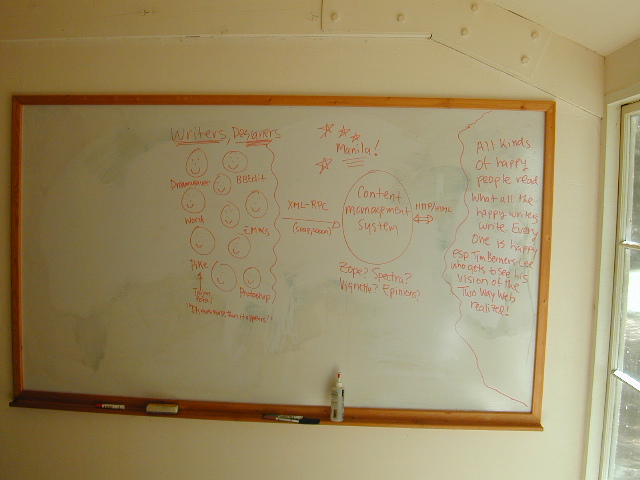 Writers, Designers
Dreamweaver
BBEdit
Word
EMACS
Pike
Photoshop
Manila!
XML-RPC
(soap, soon)
Content
management
system
HTTP/HTML
Zope? Spectra?
Vignette? Epinions?
All kinds
of happy
people read
what all the
happy writers
write. Every
one is happy
esp. Tim Berners-Lee
who gets to see his
vision of the
Two Way Web
realized!